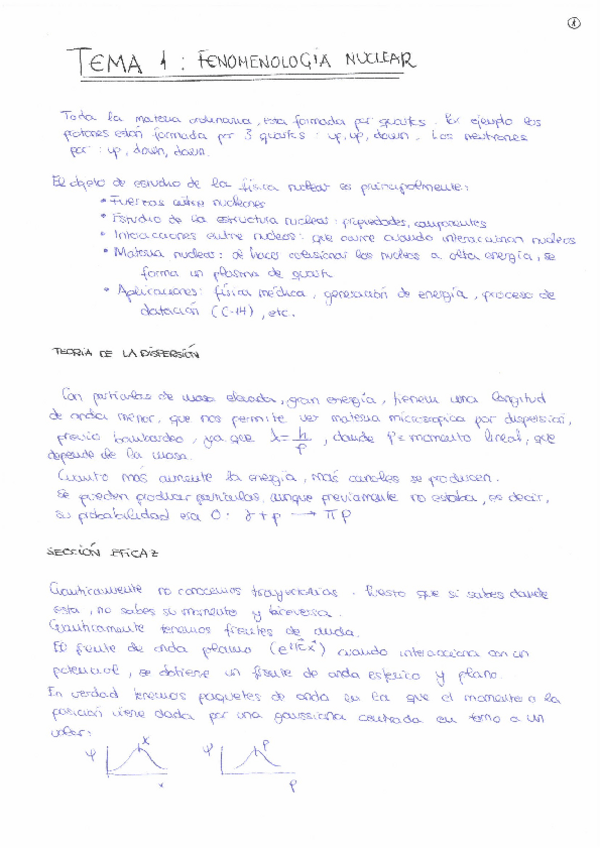 1
TEMA 1 : FENOMENOLOGÍA NUCLEAR
Toda la materia ordinaria, esta formada por quarks. Por ejemplo los
protones estan formada por 3 quarks : up, up, down. Los neutrones
por : up, down, down.
El objeto de estudio de la física nuclear es principalmente:
• Fuerzas entre nucleones
• Estudio de la estructura nuclear : propiedades, componentes
• Interacciones entre nucleos : que ocurre cuando interaccionan nucleos
• Materia nuclear : al hacer colisionar los nucleos a alta energía, se
forma un plasma de quark
• Aplicaciones : física médica, generación de energía, proceso de
datación (C-14), etc.
TEORÍA DE LA DISPERSIÓN
Con partículas de masa elevada, gran energía, tienen una longitud
de onda menor, que nos permite ver materia microscopica por dispersión,
previo bombardeo, ya que λ = h/p, donde p = momento lineal, que
depende de la masa.
Cuanto más aumente la energía, más canales se producen.
Se pueden producir partículas, aunque previamente no estaba, es decir,
su probabilidad era 0. γ + p → π p
SECCIÓN EFICAZ
Cuanticamente no conocemos trayectorias. Puesto que si sabes donde
esta, no sabes su momento y viceversa.
Cuanticamente tenemos frentes de onda.
El frente de onda plano cuando interacciona con un
potencial, se obtiene un frente de onda esferico y plano.
En verdad tenemos paquetes de onda en la que el momento o la
posición viene dada por una gaussiana centrada en torno a un
valor:
φ x x φ p p